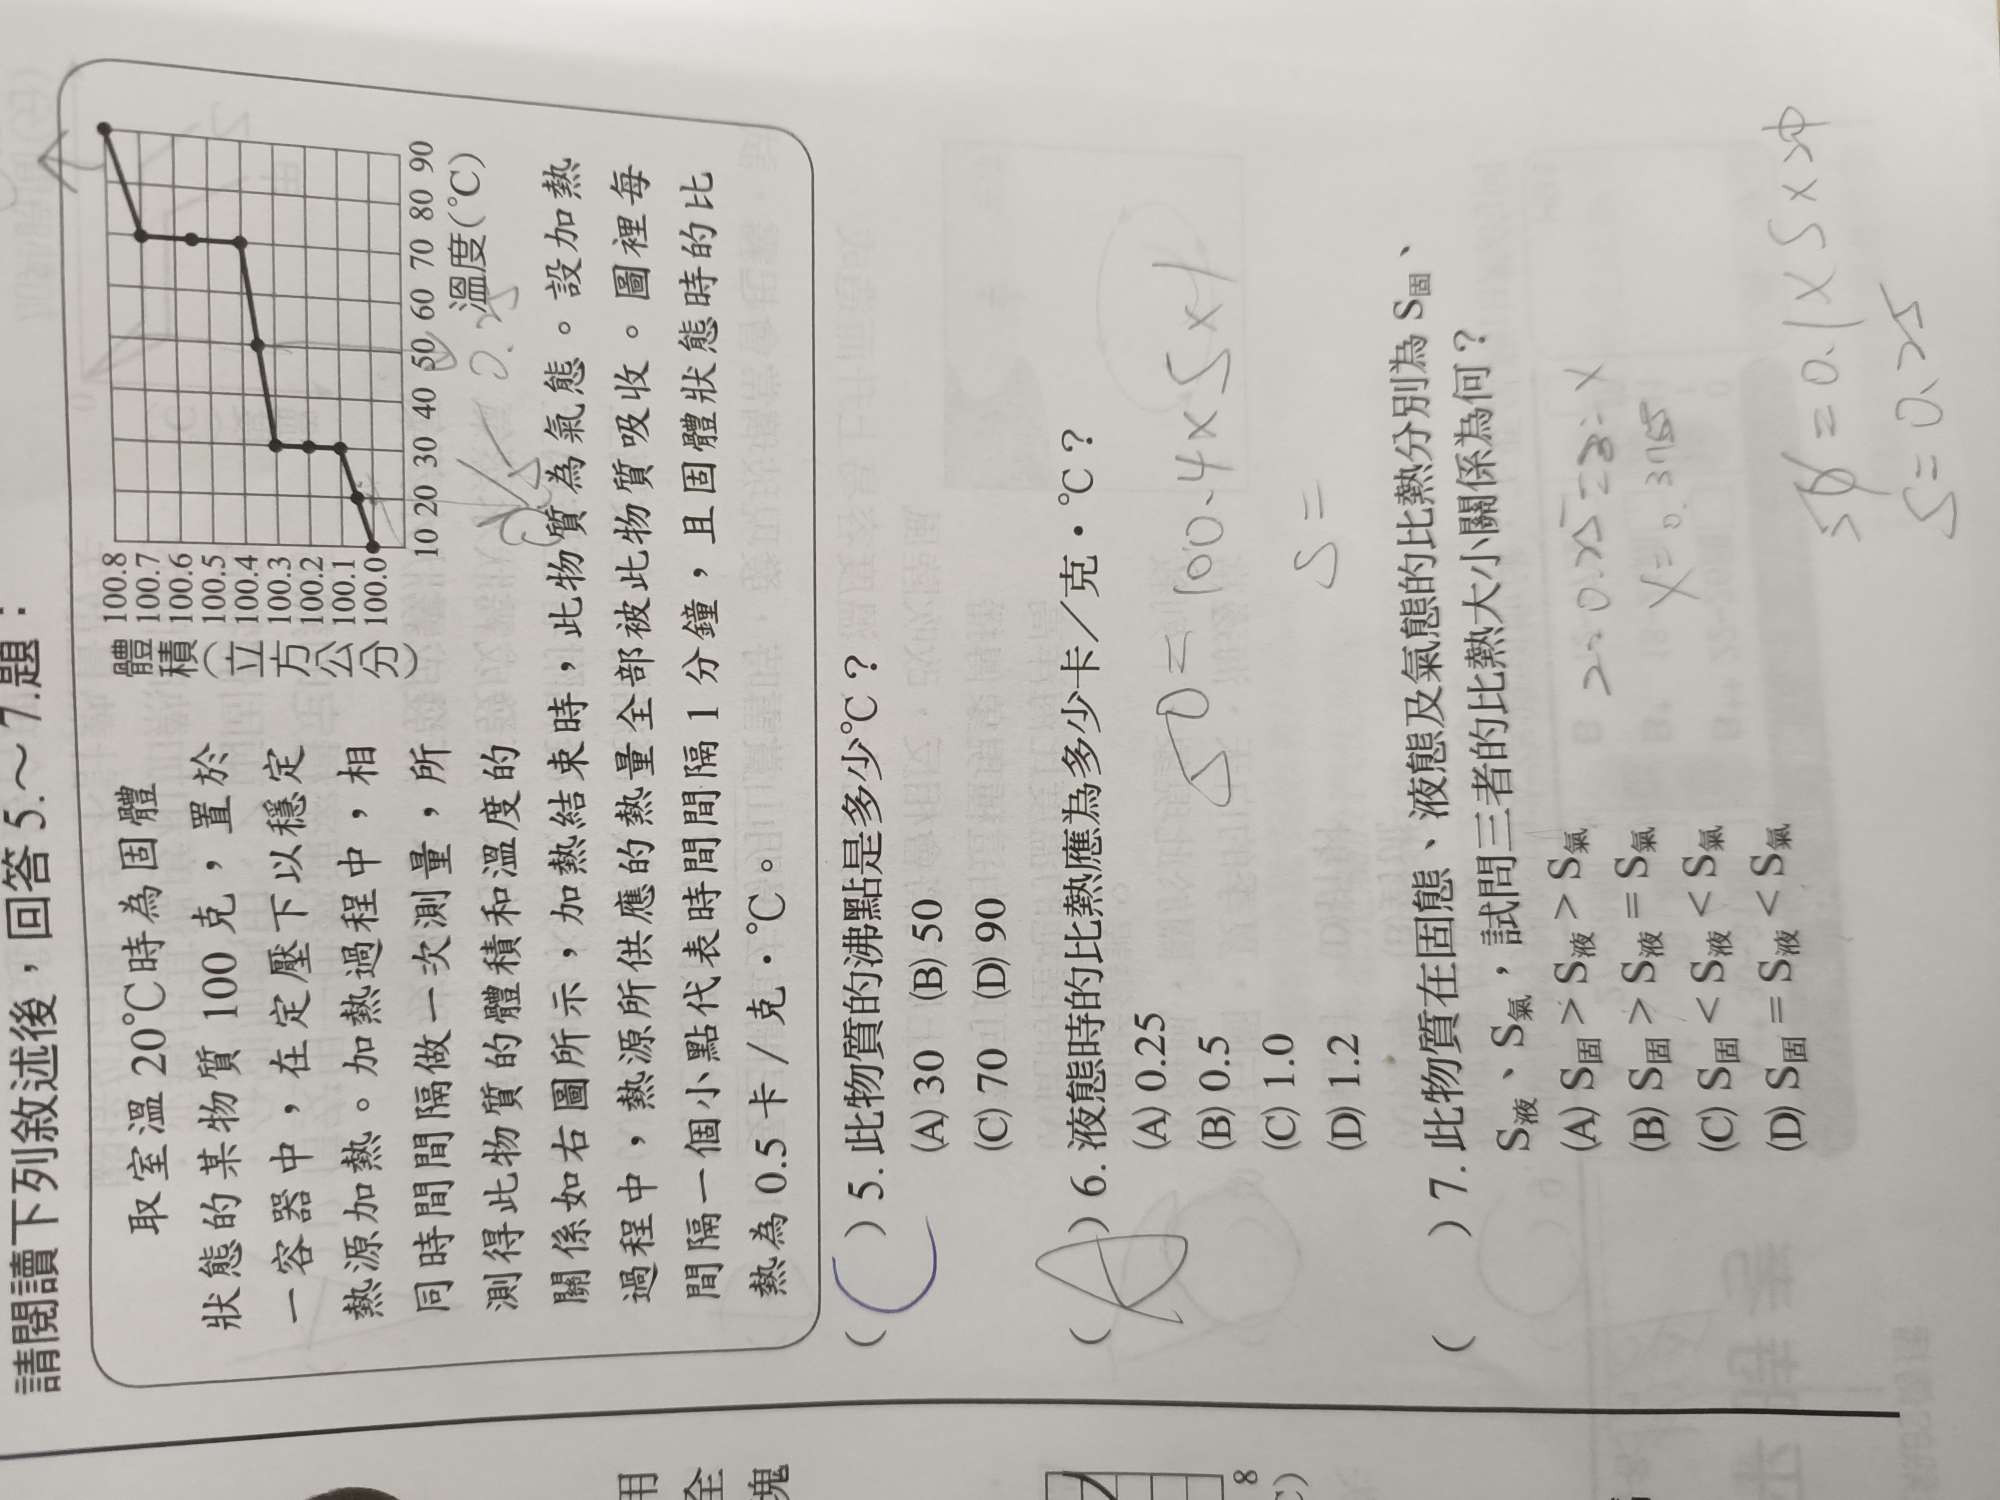 請閱讀下列敘述後，回答 5.～7.題：
取室溫 20℃時為固體
狀態的某物質 100 克，置於
一容器中，在定壓下以穩定
熱源加熱。加熱過程中，相
同時間間隔做一次測量，所
測得此物質的體積和溫度的
關係如右圖所示，加熱結束時，此物質為氣態。設加熱
過程中，熱源所供應的熱量全部被此物質吸收。圖裡每
間隔一個小點代表時間間隔 1 分鐘，且固體狀態時的比
熱為 0.5 卡 / 克・℃。
體積（立方公分）
100.8
100.7
100.6
100.5
100.4
100.3
100.2
100.1
100.0
10 20 30 40 50 60 70 80 90
溫度(℃)
0.25
( C ) 5. 此物質的沸點是多少℃？
(A) 30 (B) 50
(C) 70 (D) 90
( A ) 6. 液態時的比熱應為多少卡／克・℃？
(A) 0.25
(B) 0.5
(C) 1.0
(D) 1.2
50 = 100.4 × S × 1
S =
( ) 7. 此物質在固態、液態及氣態的比熱分別為 S固、
S液、S氣，試問三者的比熱大小關係為何？
(A) S固 > S液 > S氣
(B) S固 > S液 = S氣
(C) S固 < S液 < S氣
(D) S固 = S液 < S氣
X = 0.375
S = 0.25
用
全
塊
8